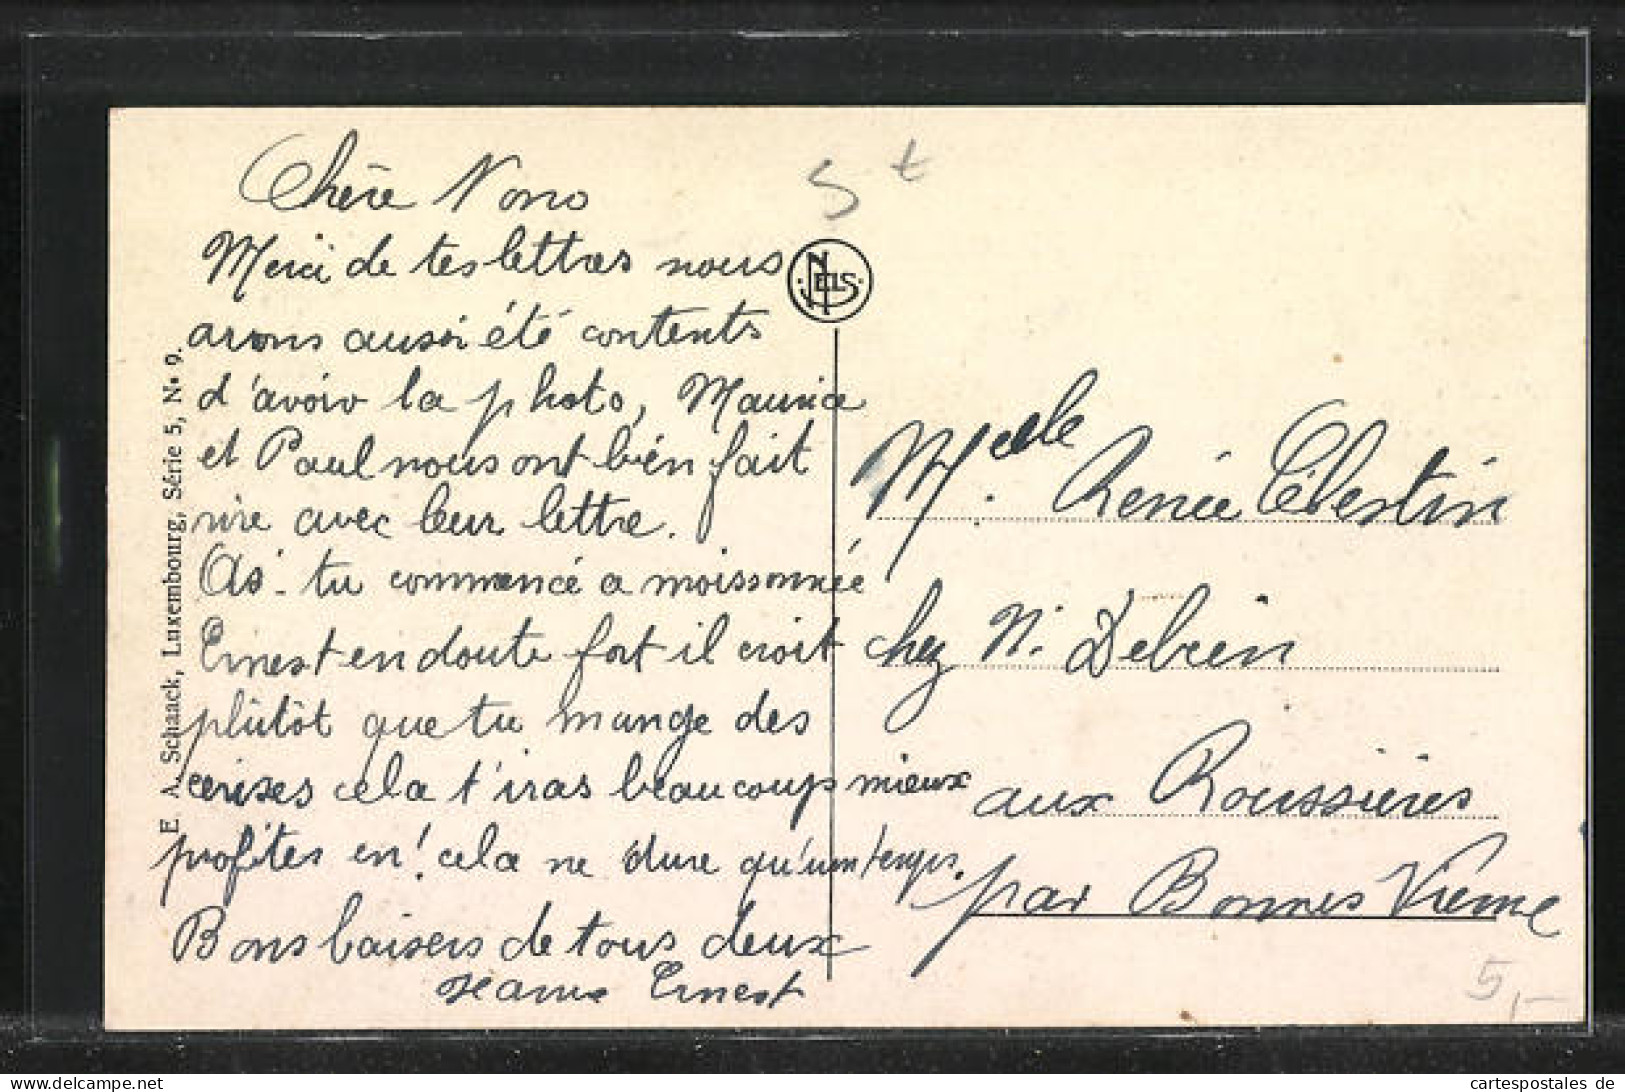 Chère Nono
Merci de tes lettres nous
avons aussi été contents
d'avoir la photo, Maurice
et Paul nous ont bien fait
rire avec leur lettre.
As-tu commencé a moissonnée
Ernest en doute fort il croit
plutôt que tu mange des
cerises cela t'iras beaucoup mieux
profites en! cela ne dure qu'un temps.
Bons baisers de tous deux
Jeanne Ernest
E. A. Schaack, Luxembourg, Série 5, No 9.
5 t
NELS
Melle. Renée Célestin
chez N. Debien
aux Roussières
par Bonnes Vienne
5,-
cartespostales de